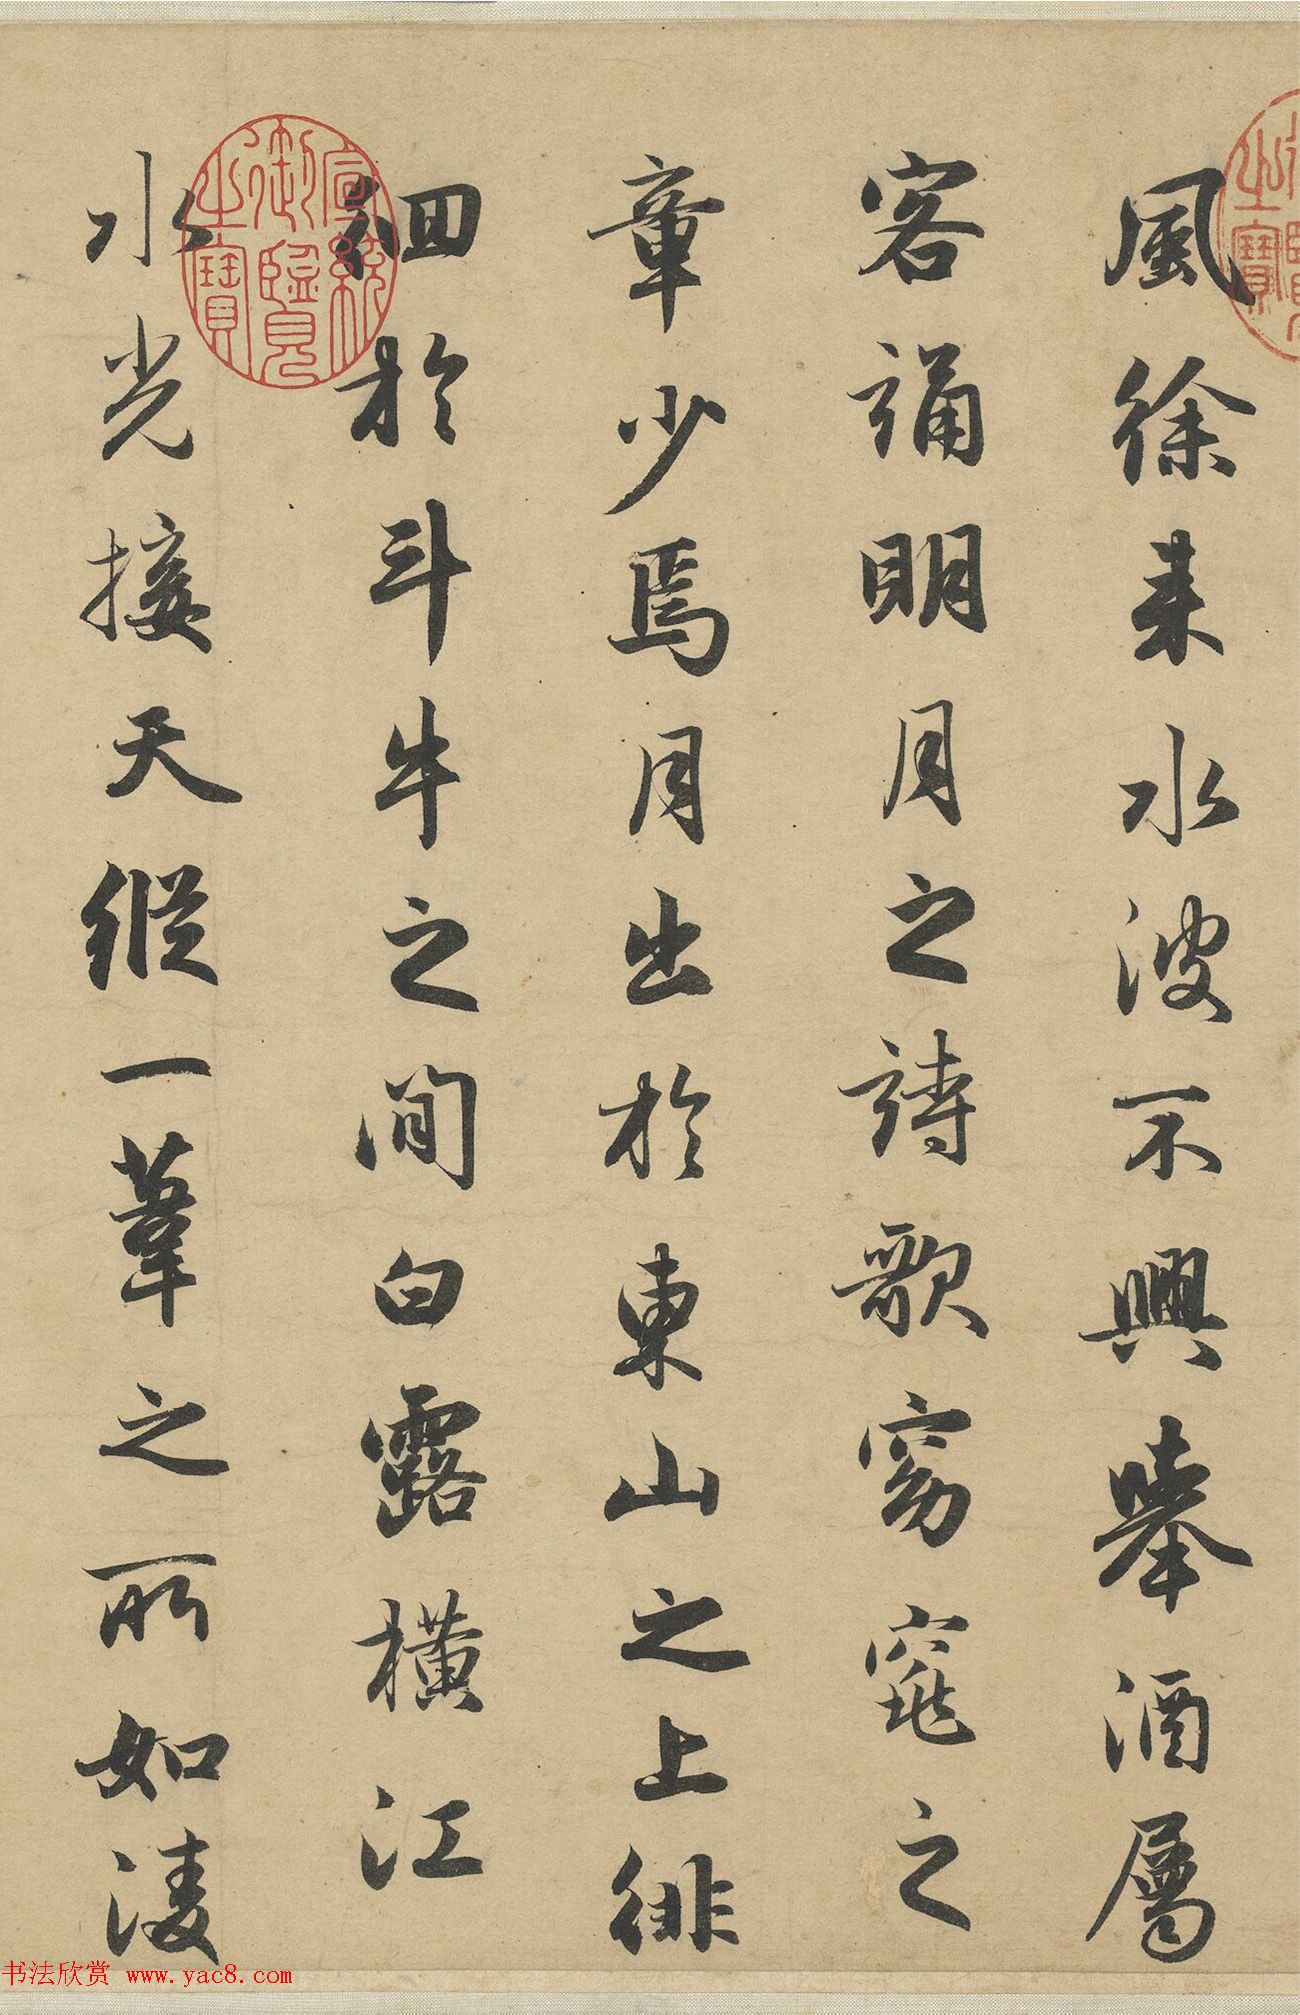 風徐来水波不興舉酒屬
客誦明月之詩歌窈窕之
章少焉月出於東山之上徘
徊於斗牛之間白露橫江
水光接天縱一葦之所如淩
宣統御覽之寶
书法欣赏 www.yac8.com